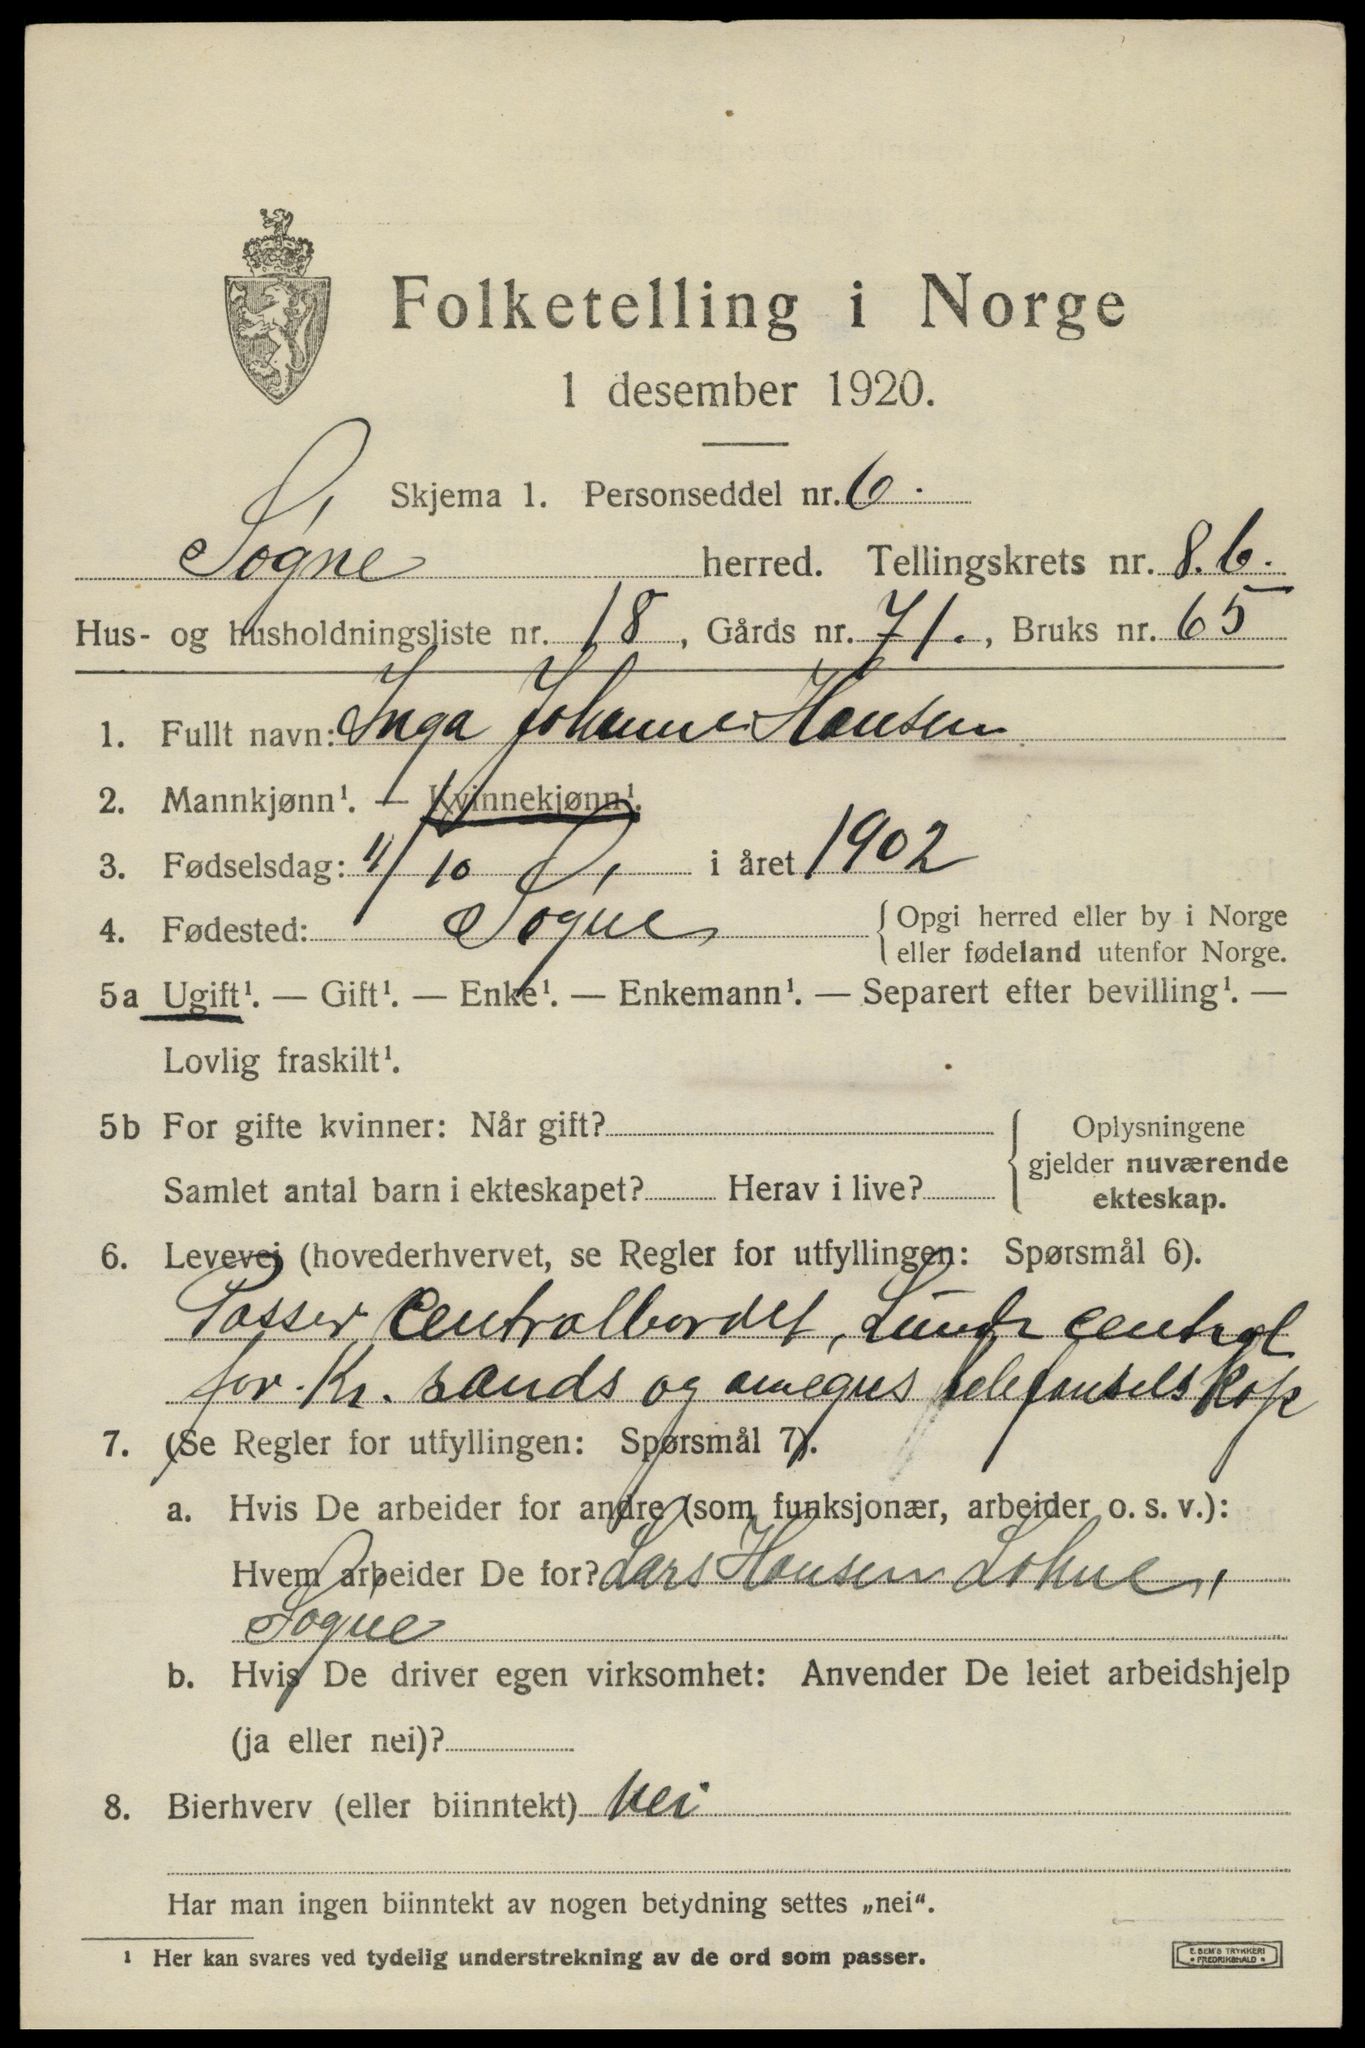 Folketelling i Norge
1 desember 1920.
Skjema 1. Personseddel nr. 6.
Søgne herred. Tellingskrets nr. 8. 6.
Hus- og husholdningsliste nr. 18, Gårds nr. 71., Bruks nr. 65
1. Fullt navn: Inga Johanne Hansen
2. Mannkjønn¹. — Kvinnekjønn¹.
3. Fødselsdag: 11/10 i året 1902
4. Fødested: Søgne { Opgi herred eller by i Norge
eller fødeland utenfor Norge.
5a Ugift¹. — Gift¹. — Enke¹. — Enkemann¹. — Separert efter bevilling¹. —
Lovlig fraskilt¹.
5b For gifte kvinner: Når gift?
Samlet antal barn i ekteskapet? Herav i live?
Oplysningene
gjelder nuværende
ekteskap.
6. Levevei (hovederhvervet, se Regler for utfyllingen: Spørsmål 6).
Passer Centralbordet, Lunde central
for Kr. sands og omegns telefonselskap
7. (Se Regler for utfyllingen: Spørsmål 7).
a. Hvis De arbeider for andre (som funksjonær, arbeider o. s. v.):
Hvem arbeider De for? Lars Hansen Lohne,
Søgne
b. Hvis De driver egen virksomhet: Anvender De leiet arbeidshjelp
(ja eller nei)?
8. Bierhverv (eller biinntekt) nei
Har man ingen biinntekt av nogen betydning settes „nei“.
¹ Her kan svares ved tydelig understrekning av de ord som passer.
E. SEM'S TRYKKERI
• FREDRIKSHALD •